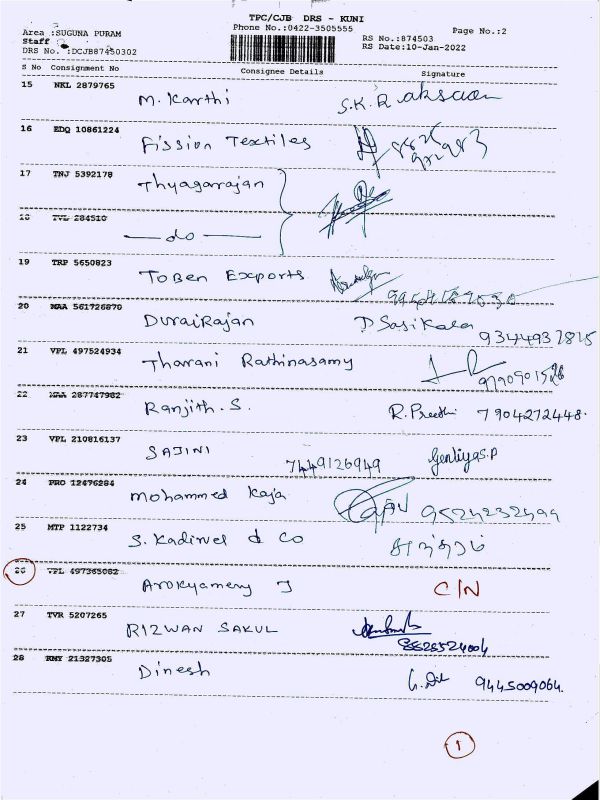 TPC/CJB DRS - KUNI
Phone No.:0422-3505555
Page No.:2
Area :SUGUNA PURAM
RS No.:874503
Staff
RS Date:10-Jan-2022
DRS No. :DCJB87450302
S No Consignment No Consignee Details Signature
15 NKL 2879765 M. Karthi S.K.R
16 EDQ 10861224 Fission Textiles
17 TNJ 5392178 Thyagarajan
18 TVL 284510 — do —
19 TRP 5650823 Toben Exports
20 MAA 561726870 DuraiRajan P Sasikala 9344937815
21 VPL 497524934 Tharani Rathinasamy
22 MAA 287747982 Ranjith. S. R. Preethi 7904272448.
23 VPL 210816137 SAJINI 7449126949
24 PRO 12476284 Mohammed Kaja 9524232499
25 MTP 1122734 S. Kadirvel & Co
26 VPL 497365082 Arokyamery J C/N
27 TVR 5207265 RIZWAN SAKUL
28 RMY 21327305 Dinesh 9445009064.
1